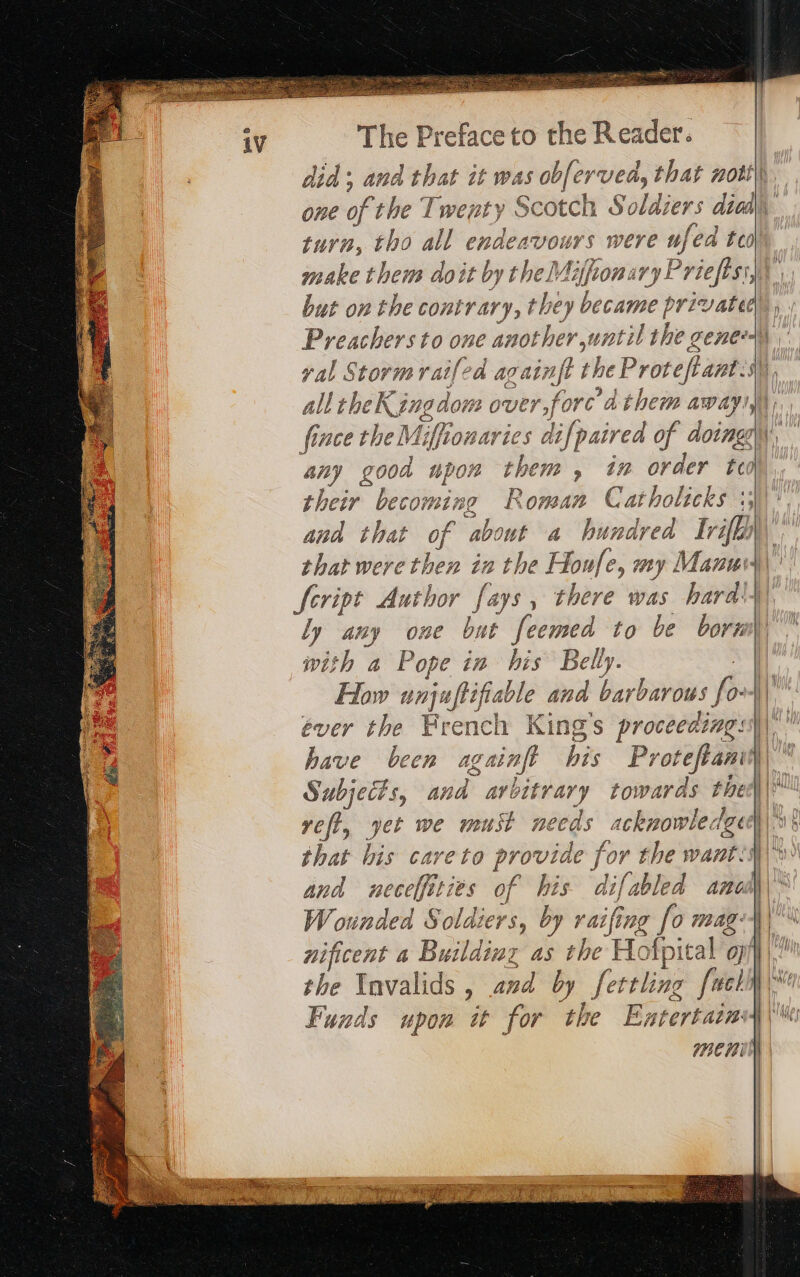 iv The Preface to the Reader.
did; and that it was obſerved, that nott
one of the Twenty Scotch Soldiers did
turn, tho all endeavours were uſed to
make them do it by the Miſſionary Prieſts;
but on the contrary, they became private
Preachers to one another, until the gene-
ral Storm raiſed againſt the Proteſtants
all the Kingdom over, forc'd them away,
ſince the Miſſionaries diſpaired of doing
any good upon them, in order to
their becoming Roman Catholicks;
and that of about a hundred Iriſh
that were then in the Houſe, my Manu-
ſcript Author ſays, there was hard-
ly any one but ſeemed to be born
with a Pope in his Belly.
How unjuſtifiable and barbarous ſo-
ever the French King's proceedings
have been againſt his Proteſtant
Subjects, and arbitrary towards the
reſt, yet we must needs acknowledge
that his care to provide for the wants
and neceſſities of his diſabled and
Wounded Soldiers, by raiſing ſo mag-
nificent a Building as the Hoſpital of
the Invalids, and by ſettling ſuch
Funds upon it for the Entertain-
ment